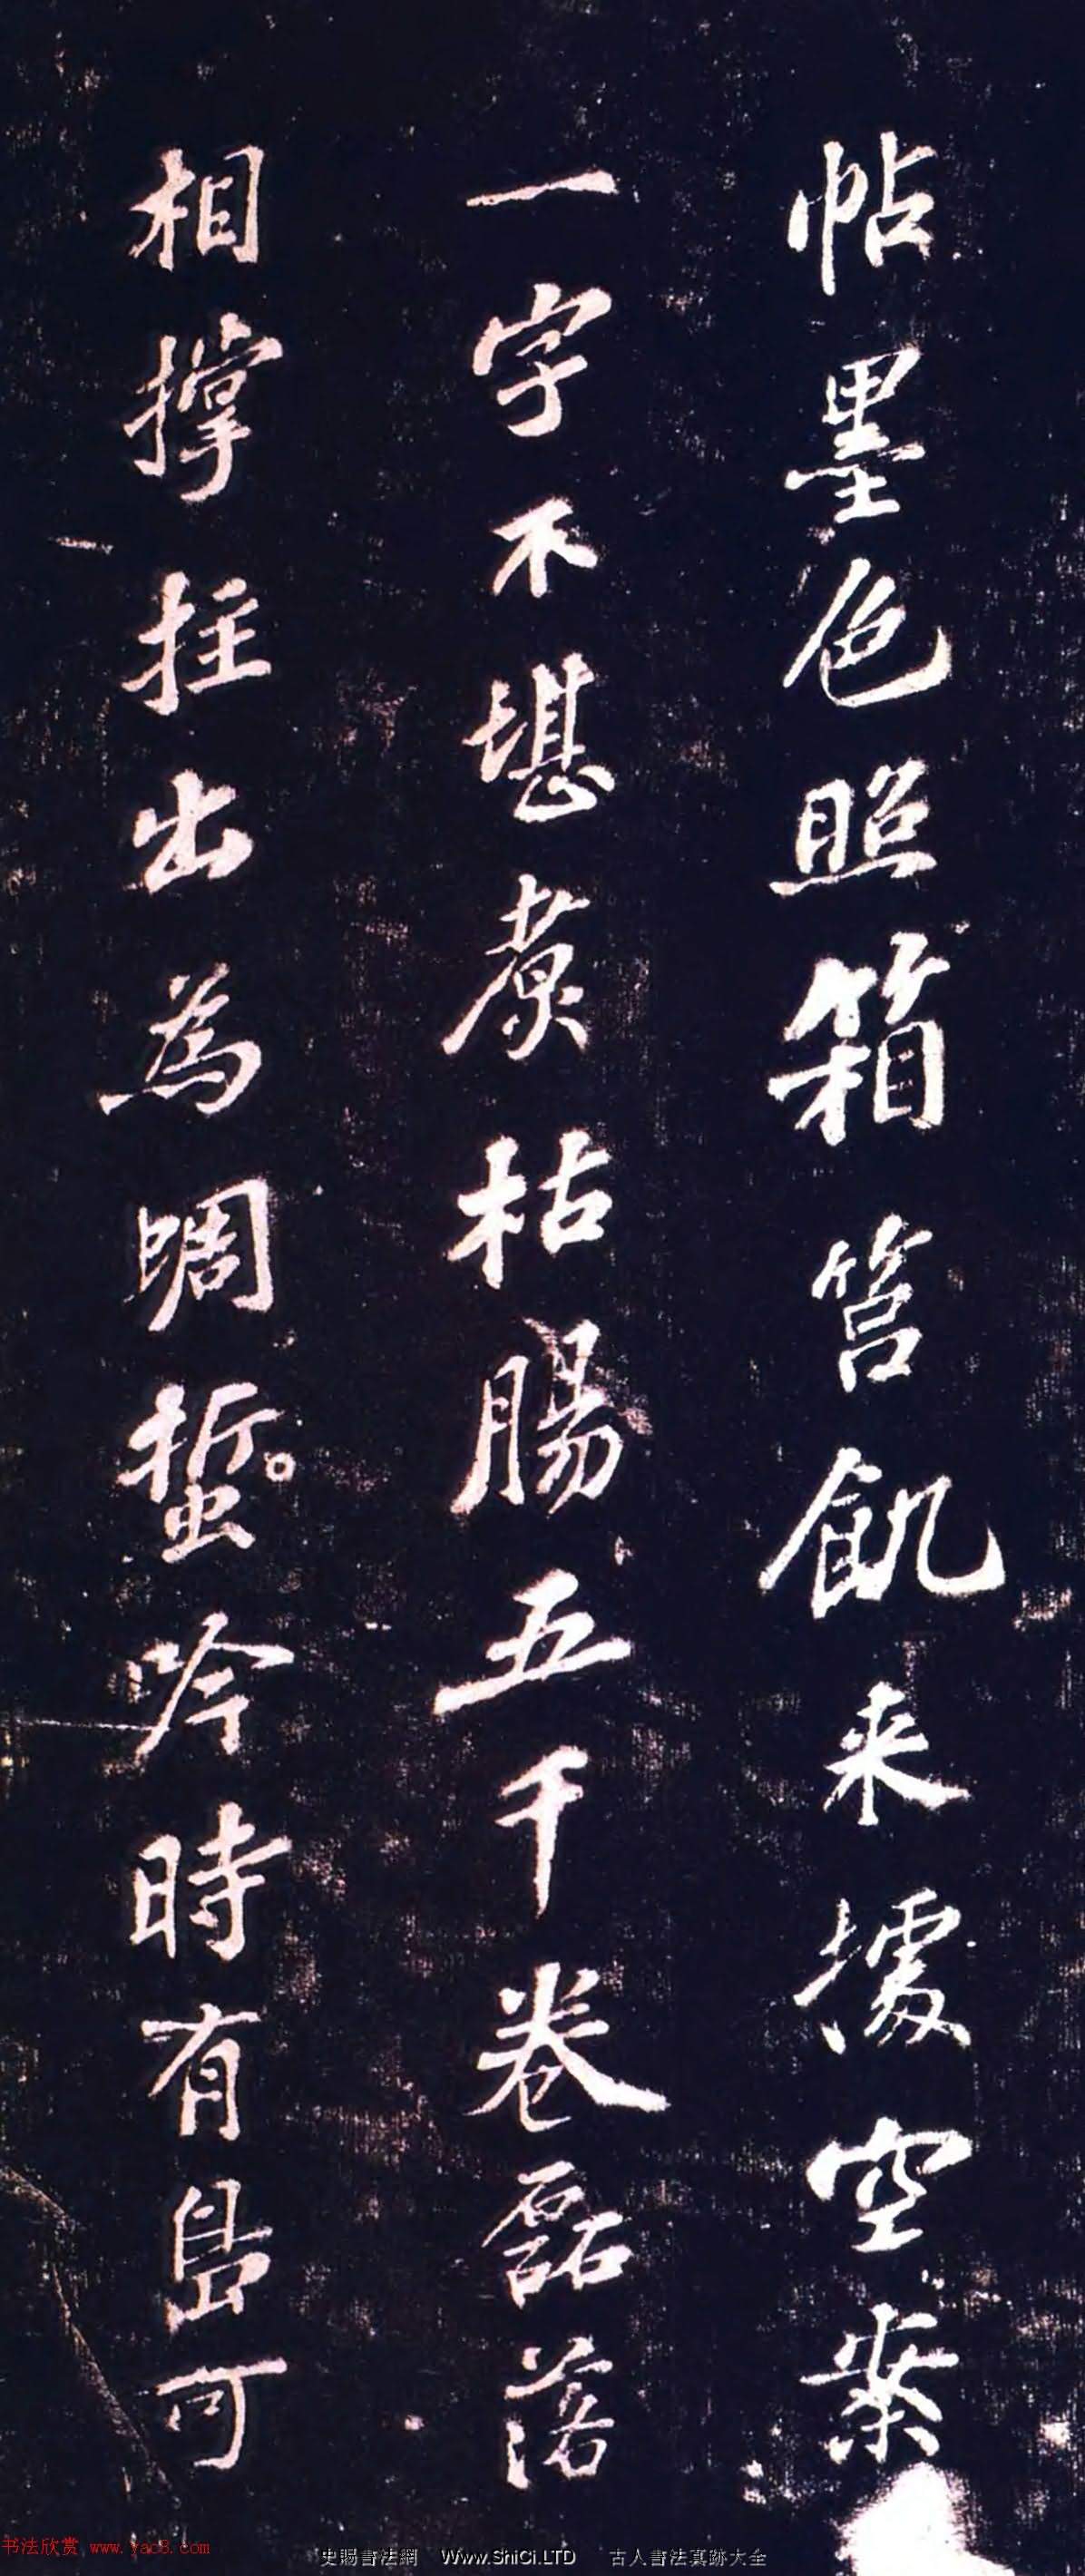 帖墨色照箱筥飢来據空案
一字不堪煑枯腸五千卷磊落
相撐拄出為蜩蜇。吟時有島可
书法欣赏 www.yac8.com
史賜書法網 Www.ShiCi.LTD 古人書法真跡大全